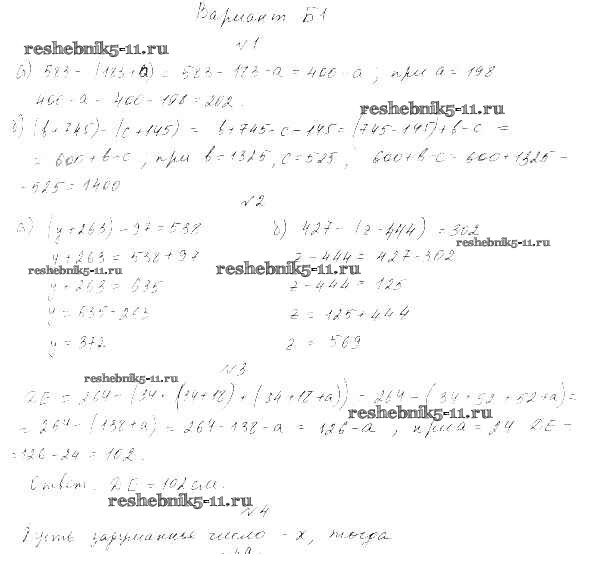 Вариант Б1
№1
reshebnik5-11.ru
а) 583 - (183+а) = 583 - 183 - а = 400 - а ; при а = 198
400 - а = 400 - 198 = 202.
reshebnik5-11.ru
б) (b+745) - (c+145) = b+745-c-145 = (745-145)+b-c =
= 600+b-c, при b=1325, c=525, 600+b-c = 600+1325-
-525 = 1400
№2
а) (y+263) - 97 = 538 б) 427 - (z-444) = 302
reshebnik5-11.ru
y+263 = 538+97 z-444 = 427-302
reshebnik5-11.ru reshebnik5-11.ru
y+263 = 635 z-444 = 125
y = 635-263 z = 125+444
y = 372 z = 569
№3
reshebnik5-11.ru
DE = 264 - (34 + (34+18) + (34+18+a)) = 264 - (34+52+52+a) =
reshebnik5-11.ru
= 264 - (138+a) = 264 - 138 - a = 126 - a , при a = 24 DE =
= 126 - 24 = 102.
Ответ. DE = 102 см.
reshebnik5-11.ru
№4
Пусть задуманное число - x, тогда